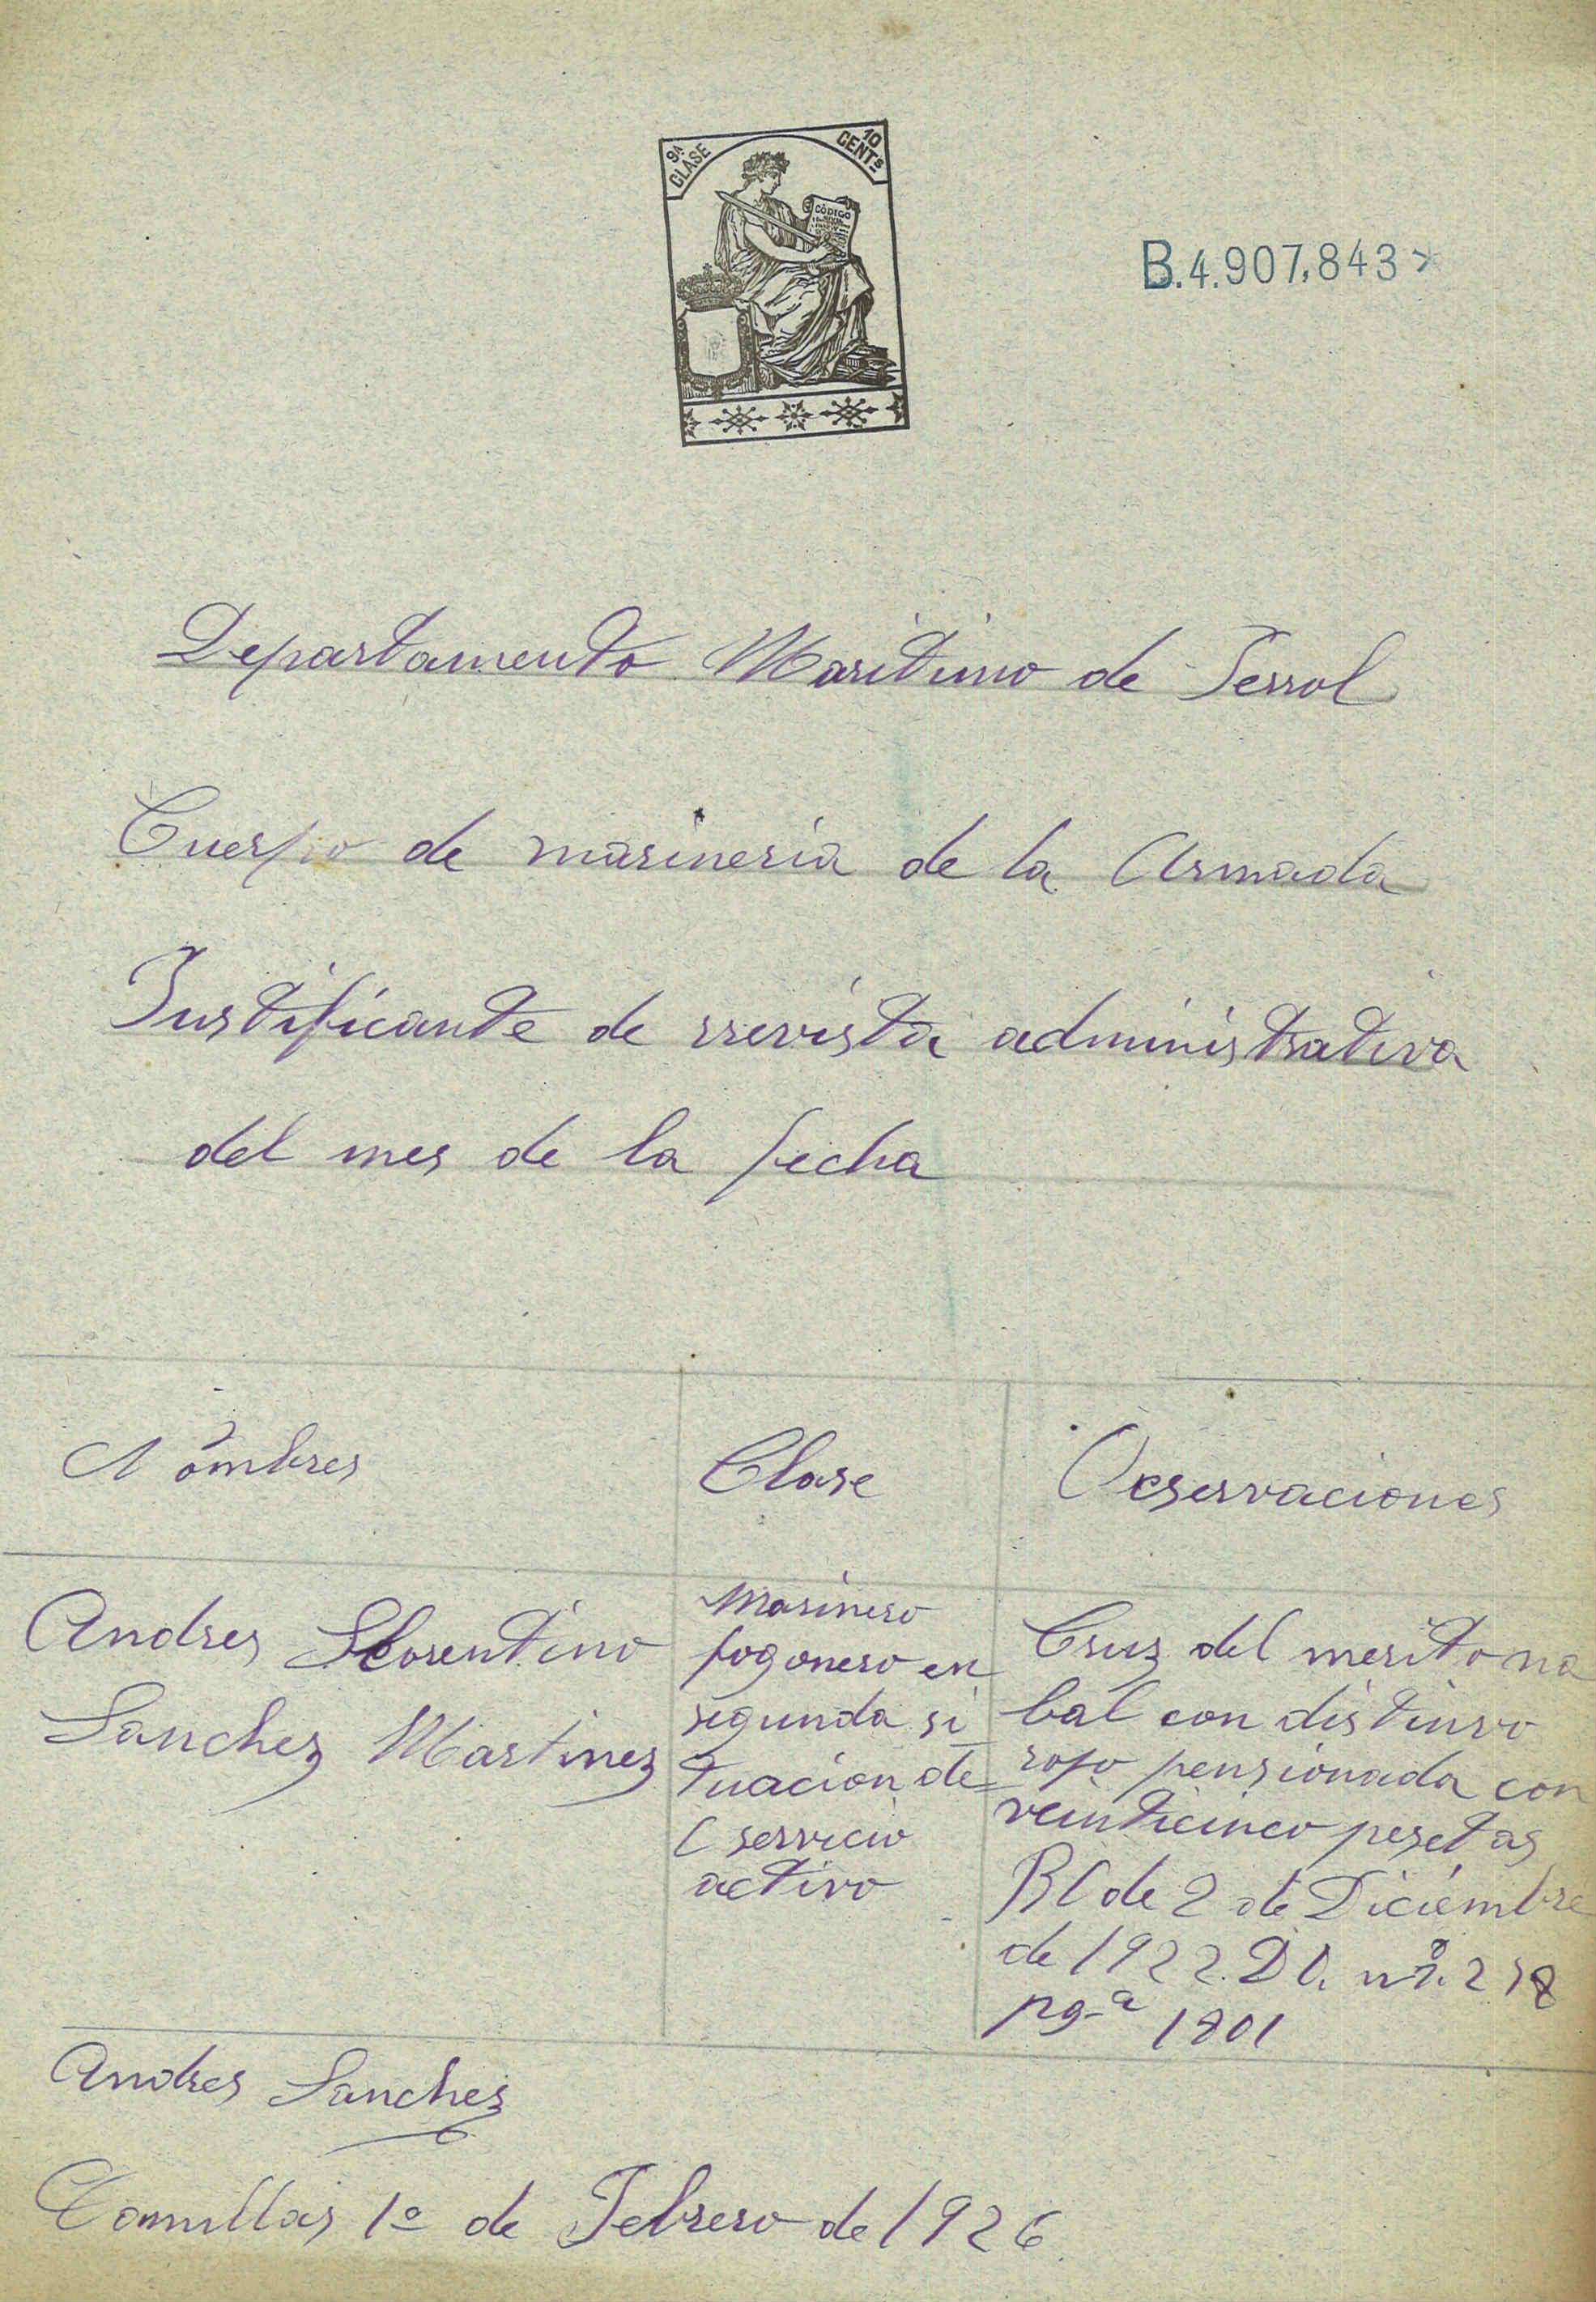 9ª CLASE
10 CENTs
CÓDIGO
B.4.907,843
Departamento Maritimo de Ferrol
Cuerpo de marineria de la Armada
Justificante de rrevista administrativa
del mes de la fecha
Nombres
Clase
Oeservaciones
Andres Florentino
Sanchez Martinez
Marinero
fogonero en
segunda si
tuacion de
l servicio
activo
Cruz del merito na
bal con distinvo
rojo pensionada con
veinticinco pesetas
RO de 2 de Diciembre
de 1922. D O. nº.
pg-a 1801
Andres Sanchez
Comillas 1º de Febrero de 1926